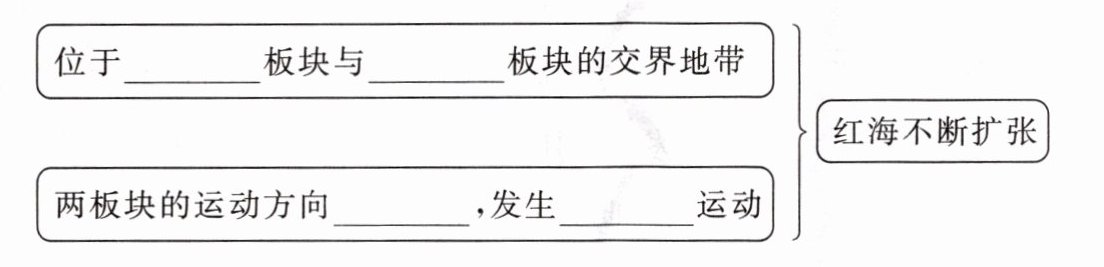 位于________板块与________板块的交界地带
红海不断扩张
两板块的运动方向________,发生________运动